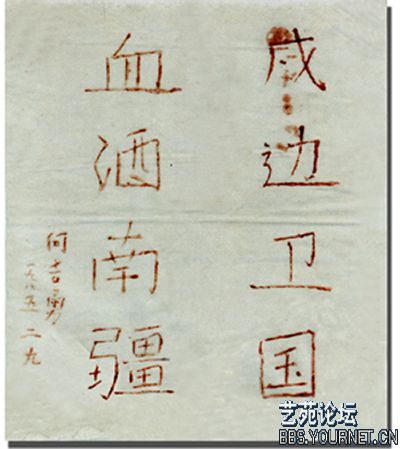 戍边卫国
血洒南疆
何吉勇
一九八五 二 九
艺苑论坛
BBS.YOURNET.CN